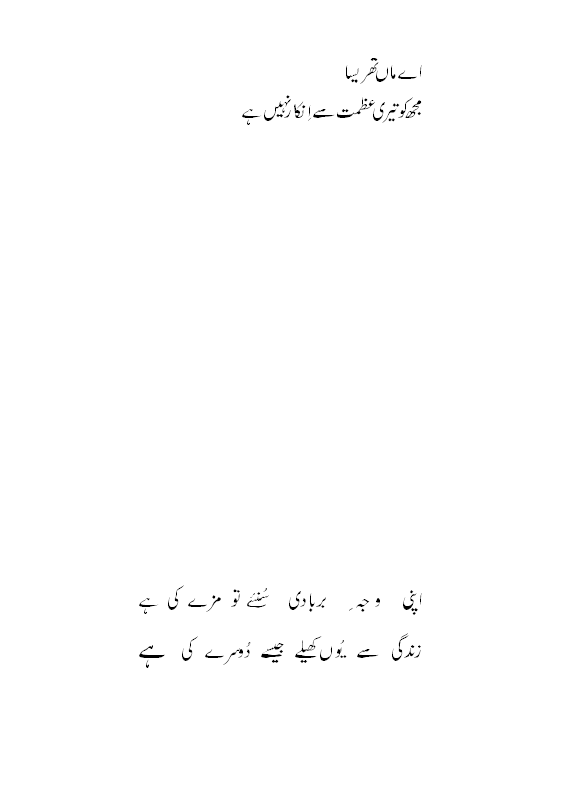 اے ماں تھریسا
مجھ کو تیری عظمت سے اِنکار نہیں ہے
اپنی وجہِ بربادی سُنئے تو مزے کی ہے
زندگی سے یُوں کھیلے جیسے دُوسرے کی ہے